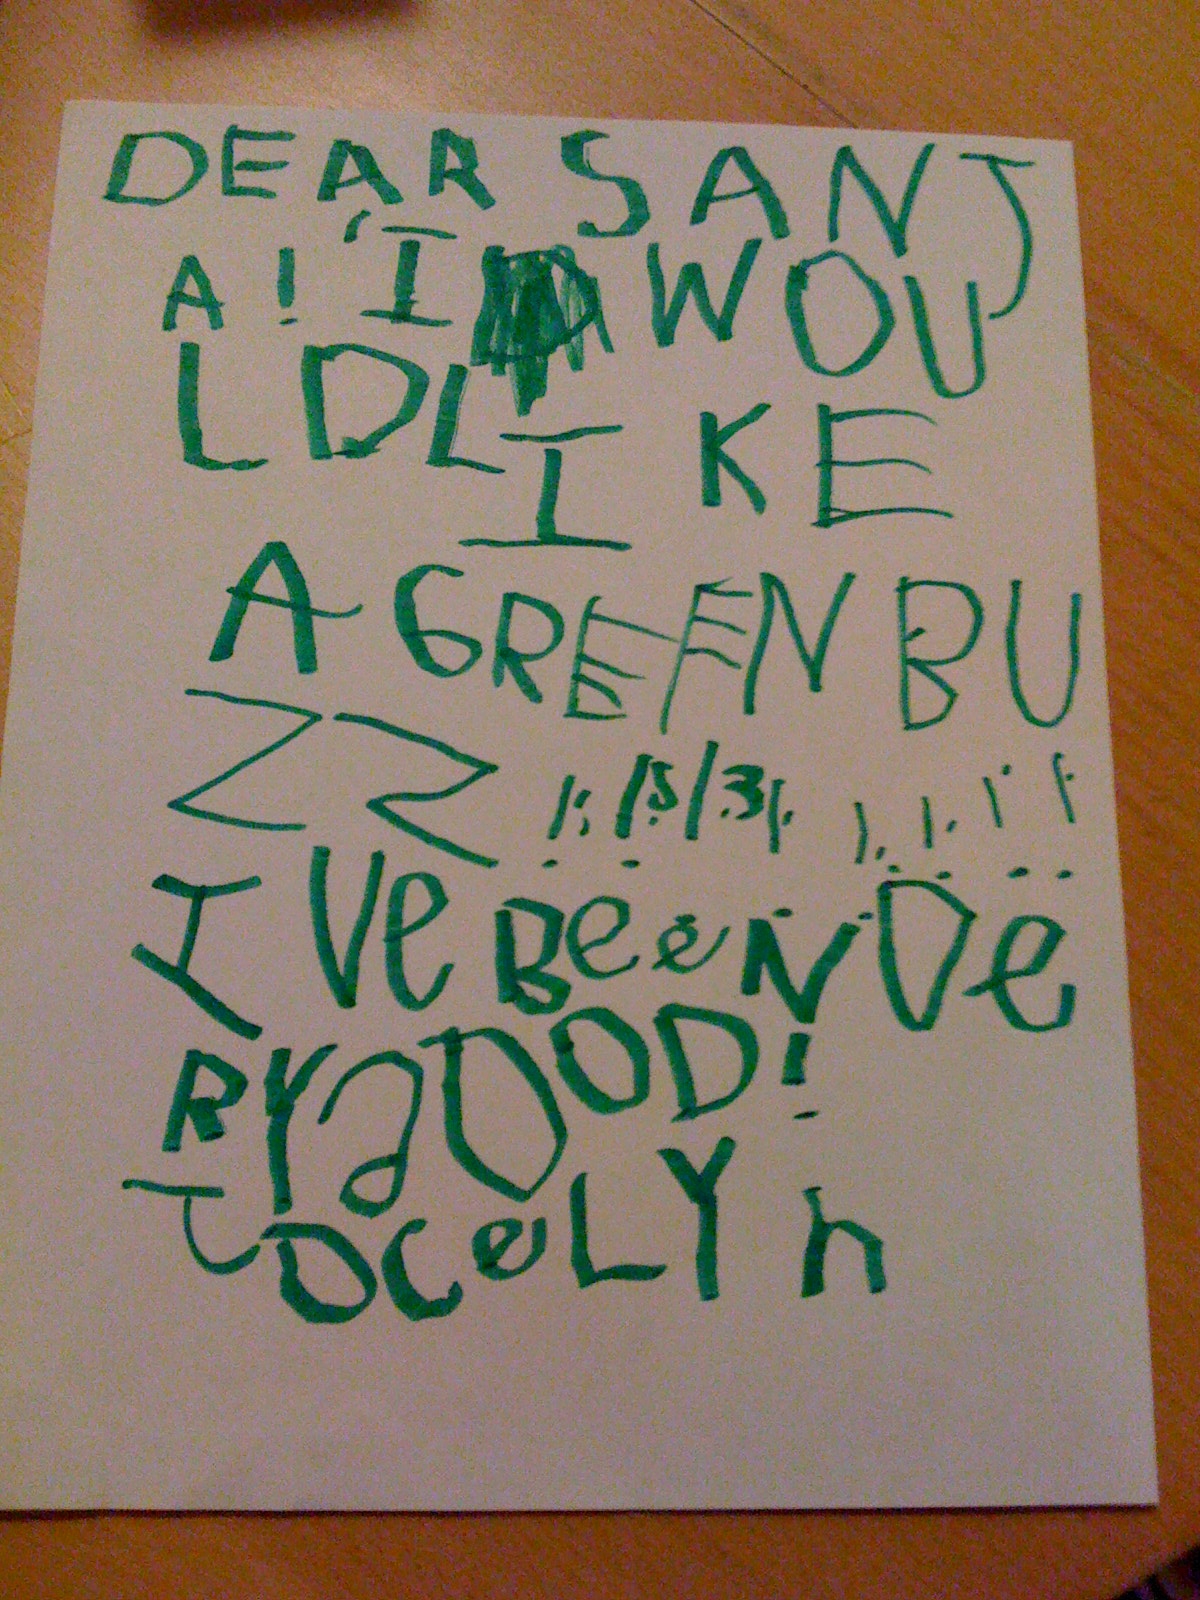 DEAR SANJ
A! I WOU
LDLIKE
A GREEN BU
ZZ !!!!!!!!!!
I VeBeeN Ve
RY GOOD!
JOCeLYn